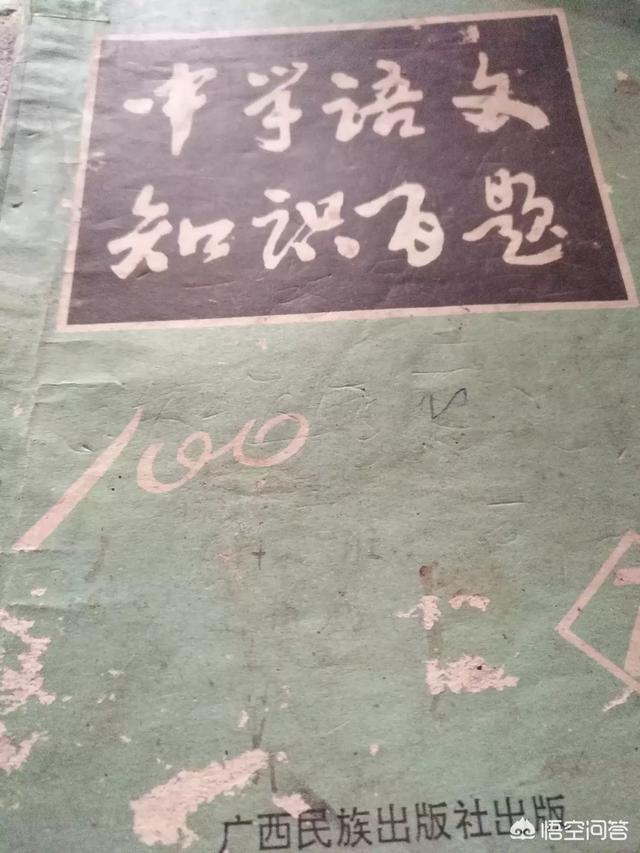 中学语文
知识百题
100
广西民族出版社出版
悟空问答